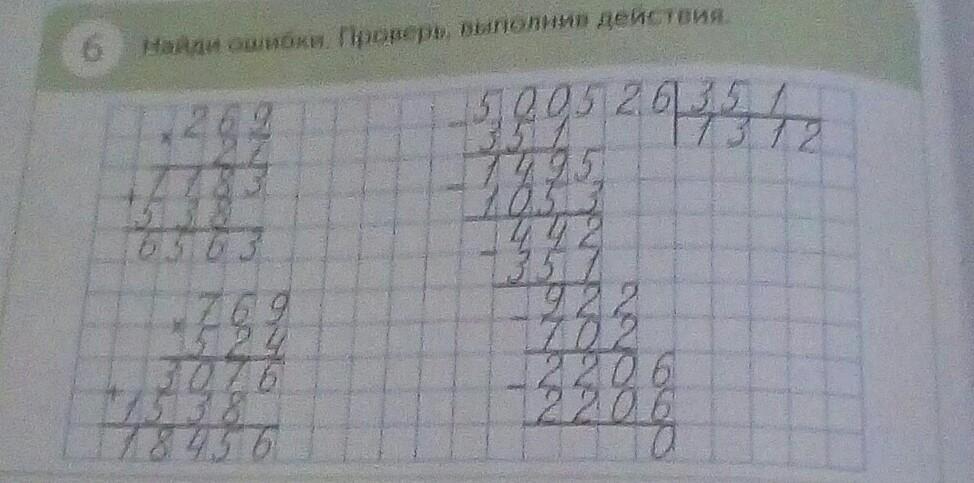 6 Найди ошибки. Проверь, выполнив действия.
× 269
27
+ 1183
538
6563
× 769
524
+ 3076
1538
18456
- 500526 | 351
351 1312
- 1495
1053
- 442
351
- 922
702
- 2206
2206
0